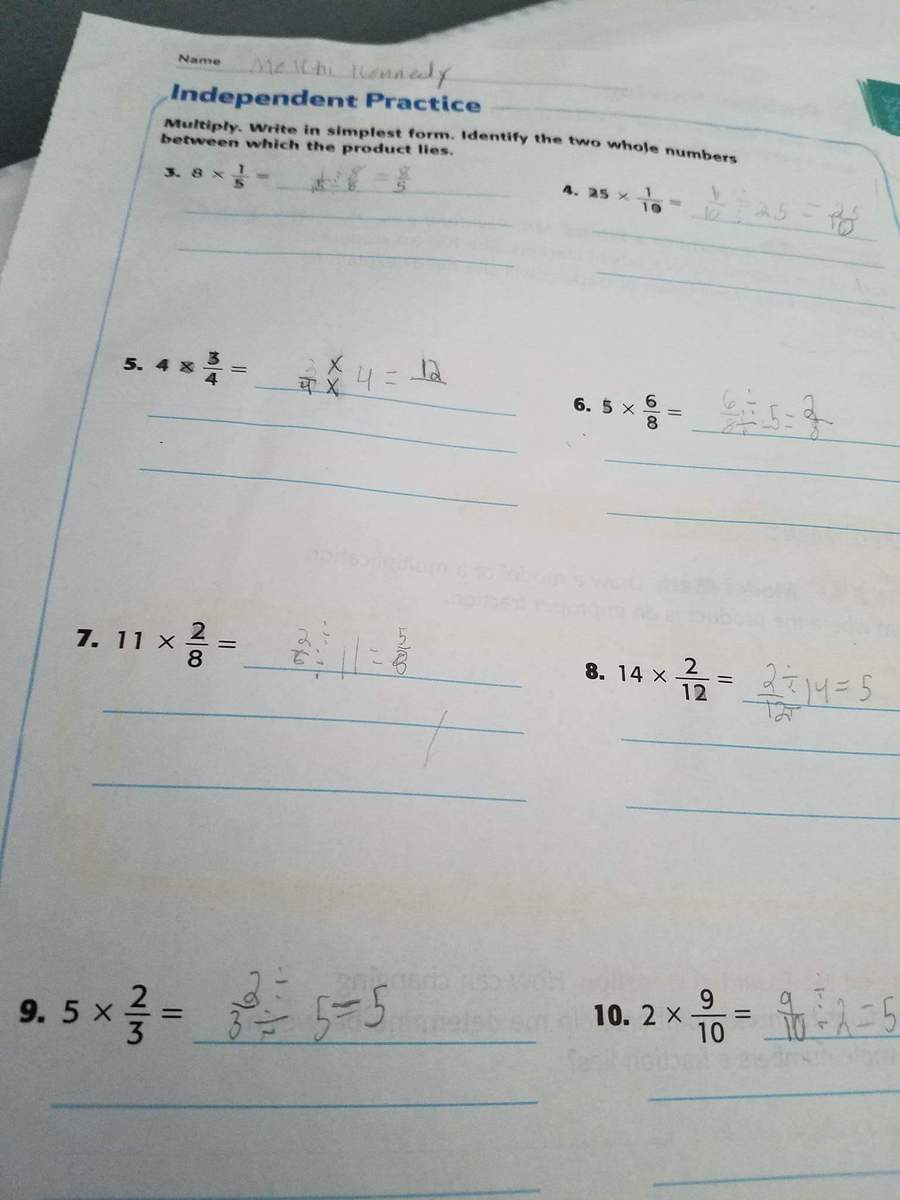 Name Melchi Kennedy
Independent Practice
Multiply. Write in simplest form. Identify the two whole numbers
between which the product lies.
3. 8 × 1/5 = = 8/5
4. 25 × 1/10 = 1/10 ÷ 25 = 25/10
5. 4 × 3/4 = 3/4 × × 4 = 12
6. 5 × 6/8 = 6/8 ÷ ÷ 5 =
7. 11 × 2/8 = ÷ ÷ 11 = 5/8
8. 14 × 2/12 = 2/12 ÷ 14 = 5
9. 5 × 2/3 = 2/3 ÷ ÷ 5 = 5
10. 2 × 9/10 = 9/10 ÷ 2 = 5